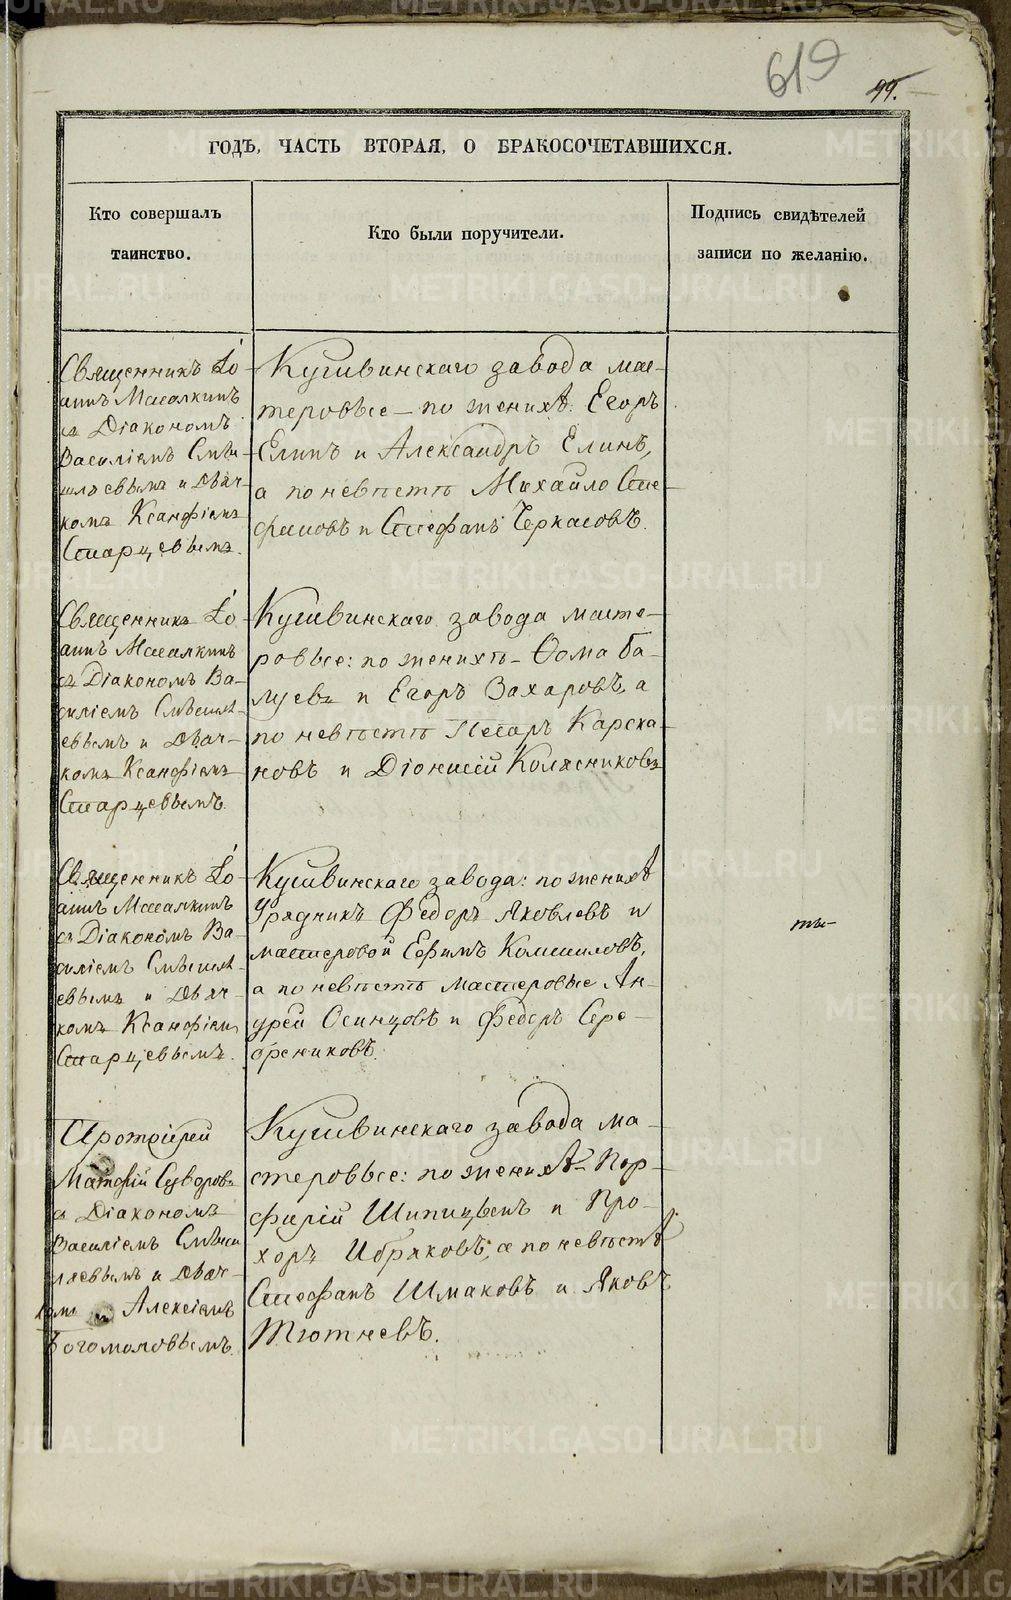 619
99.
ГОДЪ, ЧАСТЬ ВТОРАЯ, О БРАКОСОЧЕТАВШИХСЯ.
Кто совершалъ
таинство.
Кто были поручители.
Подпись свидѣтелей
записи по желанію.
Священникъ Іо-
аннъ Масалкинъ
съ Діакономъ
Василіемъ Смѣш-
ляевымъ и Дьяч-
комъ Ксанфіемъ
Старцевымъ.
Кушвинскаго завода мас-
теровые – по женихѣ: Егоръ
Елинъ и Александръ Елинъ,
а по невѣстѣ Михайло
и Стефанъ Черкасовъ.
Священникъ Іо-
аннъ Масалкинъ
съ Діакономъ Ва-
силіемъ Смѣшля-
евымъ и Дьяч-
комъ Ксанфіемъ
Старцевымъ.
Кушвинскаго завода масте-
ровые: по женихѣ – Ѳома Ба-
луевъ и Егоръ Захаровъ, а
по невѣстѣ Карска-
новъ и Діонисій Колясниковъ
Священникъ Іо-
аннъ Масалкинъ
съ Діакономъ Ва-
силіемъ Смѣшля-
евымъ и Дьяч-
комъ Ксанфіемъ
Старцевымъ.
Кушвинскаго завода: по женихѣ
Урядникъ Федоръ Яковлевъ и
мастеровой Ефимъ
а по невѣстѣ мастеровые Ан-
дрей Осинцовъ и Федоръ Сере-
брениковъ.
Протоіерей
Матѳій Суворовъ
съ Діакономъ
Василіемъ Смѣш-
ляевымъ и Дьяч-
комъ Алексіемъ
Богомоловымъ.
Кушвинскаго завода ма-
стеровые: по женихѣ – Пор-
фирій Шипицынъ и Про-
хоръ Ибряковъ, а по невѣстѣ
Стефанъ Шмаковъ и Яковъ
Тютневъ.
METRIKI.GASO-URAL.RU